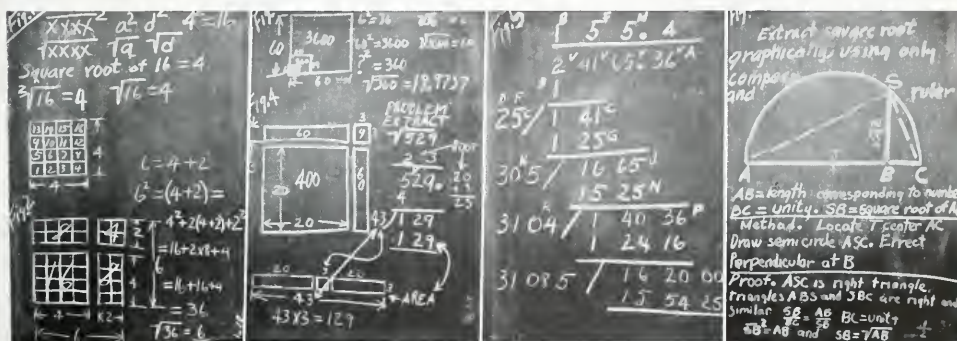 XXXX a² d² 4²=16
√XXXX √a √d
Square root of 16 = 4.
²√16 = 4 √16 = 4
13 14 15 16
9 10 11 12
5 6 7 8
1 2 3 4
4
4
6=4+2
6²=(4+2)=
4²+2(4+2)+2²
=16+2x8+4
=16+16+4
=36
√36=6
2
4
6
8
4
16
8
4
6
60
3600
60
60²=3600
?²=360
√360=18.9737
PROBLEM
EXTRACT
√529
ROOT
2 3
529.
4
43/129
129
20
+3
60
3
9
400
20
20
60
20
3
20
3
43
AREA
43X3=129
1 5 5. 4
2 41 65 36
1
25/ 1 41
1 25
305/ 16 65
15 25
3104/ 1 40 36
1 24 16
31085/ 16 20 00
15 54 25
Extract square root
graphically using only
compass
and ruler
S
A B C
AB=length corresponding to number
BC=unity. SB=square root of
Method. Locate T center AC
Draw semicircle ASC. Errect
Perpendicular at B
Proof. ASC is right triangle,
triangles ABS and SBC are right and
Similar SB/BC = AB/SB BC=unity
SB²=AB and SB=√AB